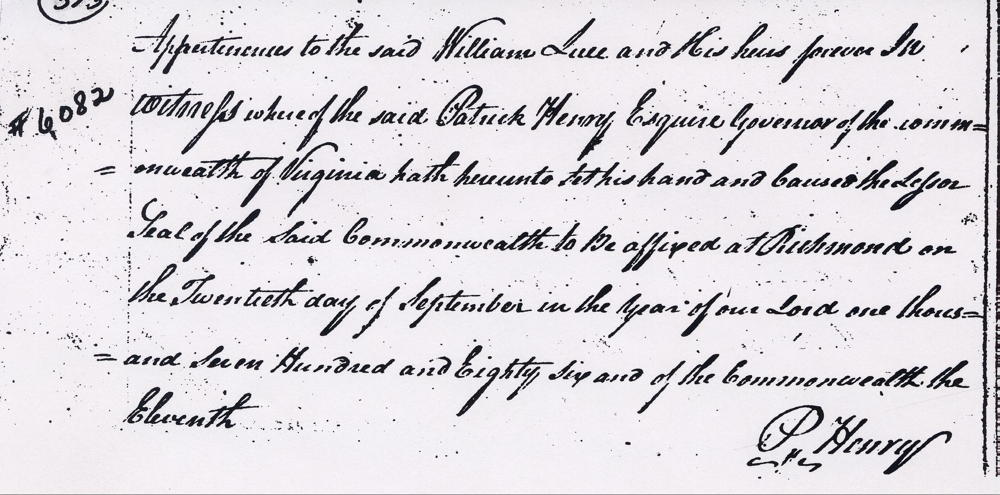 Appertenences to the said William Luce and His heirs forever In
#6082
Witness whereof the said Patrick Henry Esquire Governor of the comm=
=onwealth of Virginia hath hereunto set his hand and Caused the Lesser
Seal of the Said Commonwealth to Be affixed at Richmond on
the Twentieth day of September in the year of our Lord one thous=
=and Seven Hundred and Eighty six and of the Commonwealth the
Eleventh
P. Henry